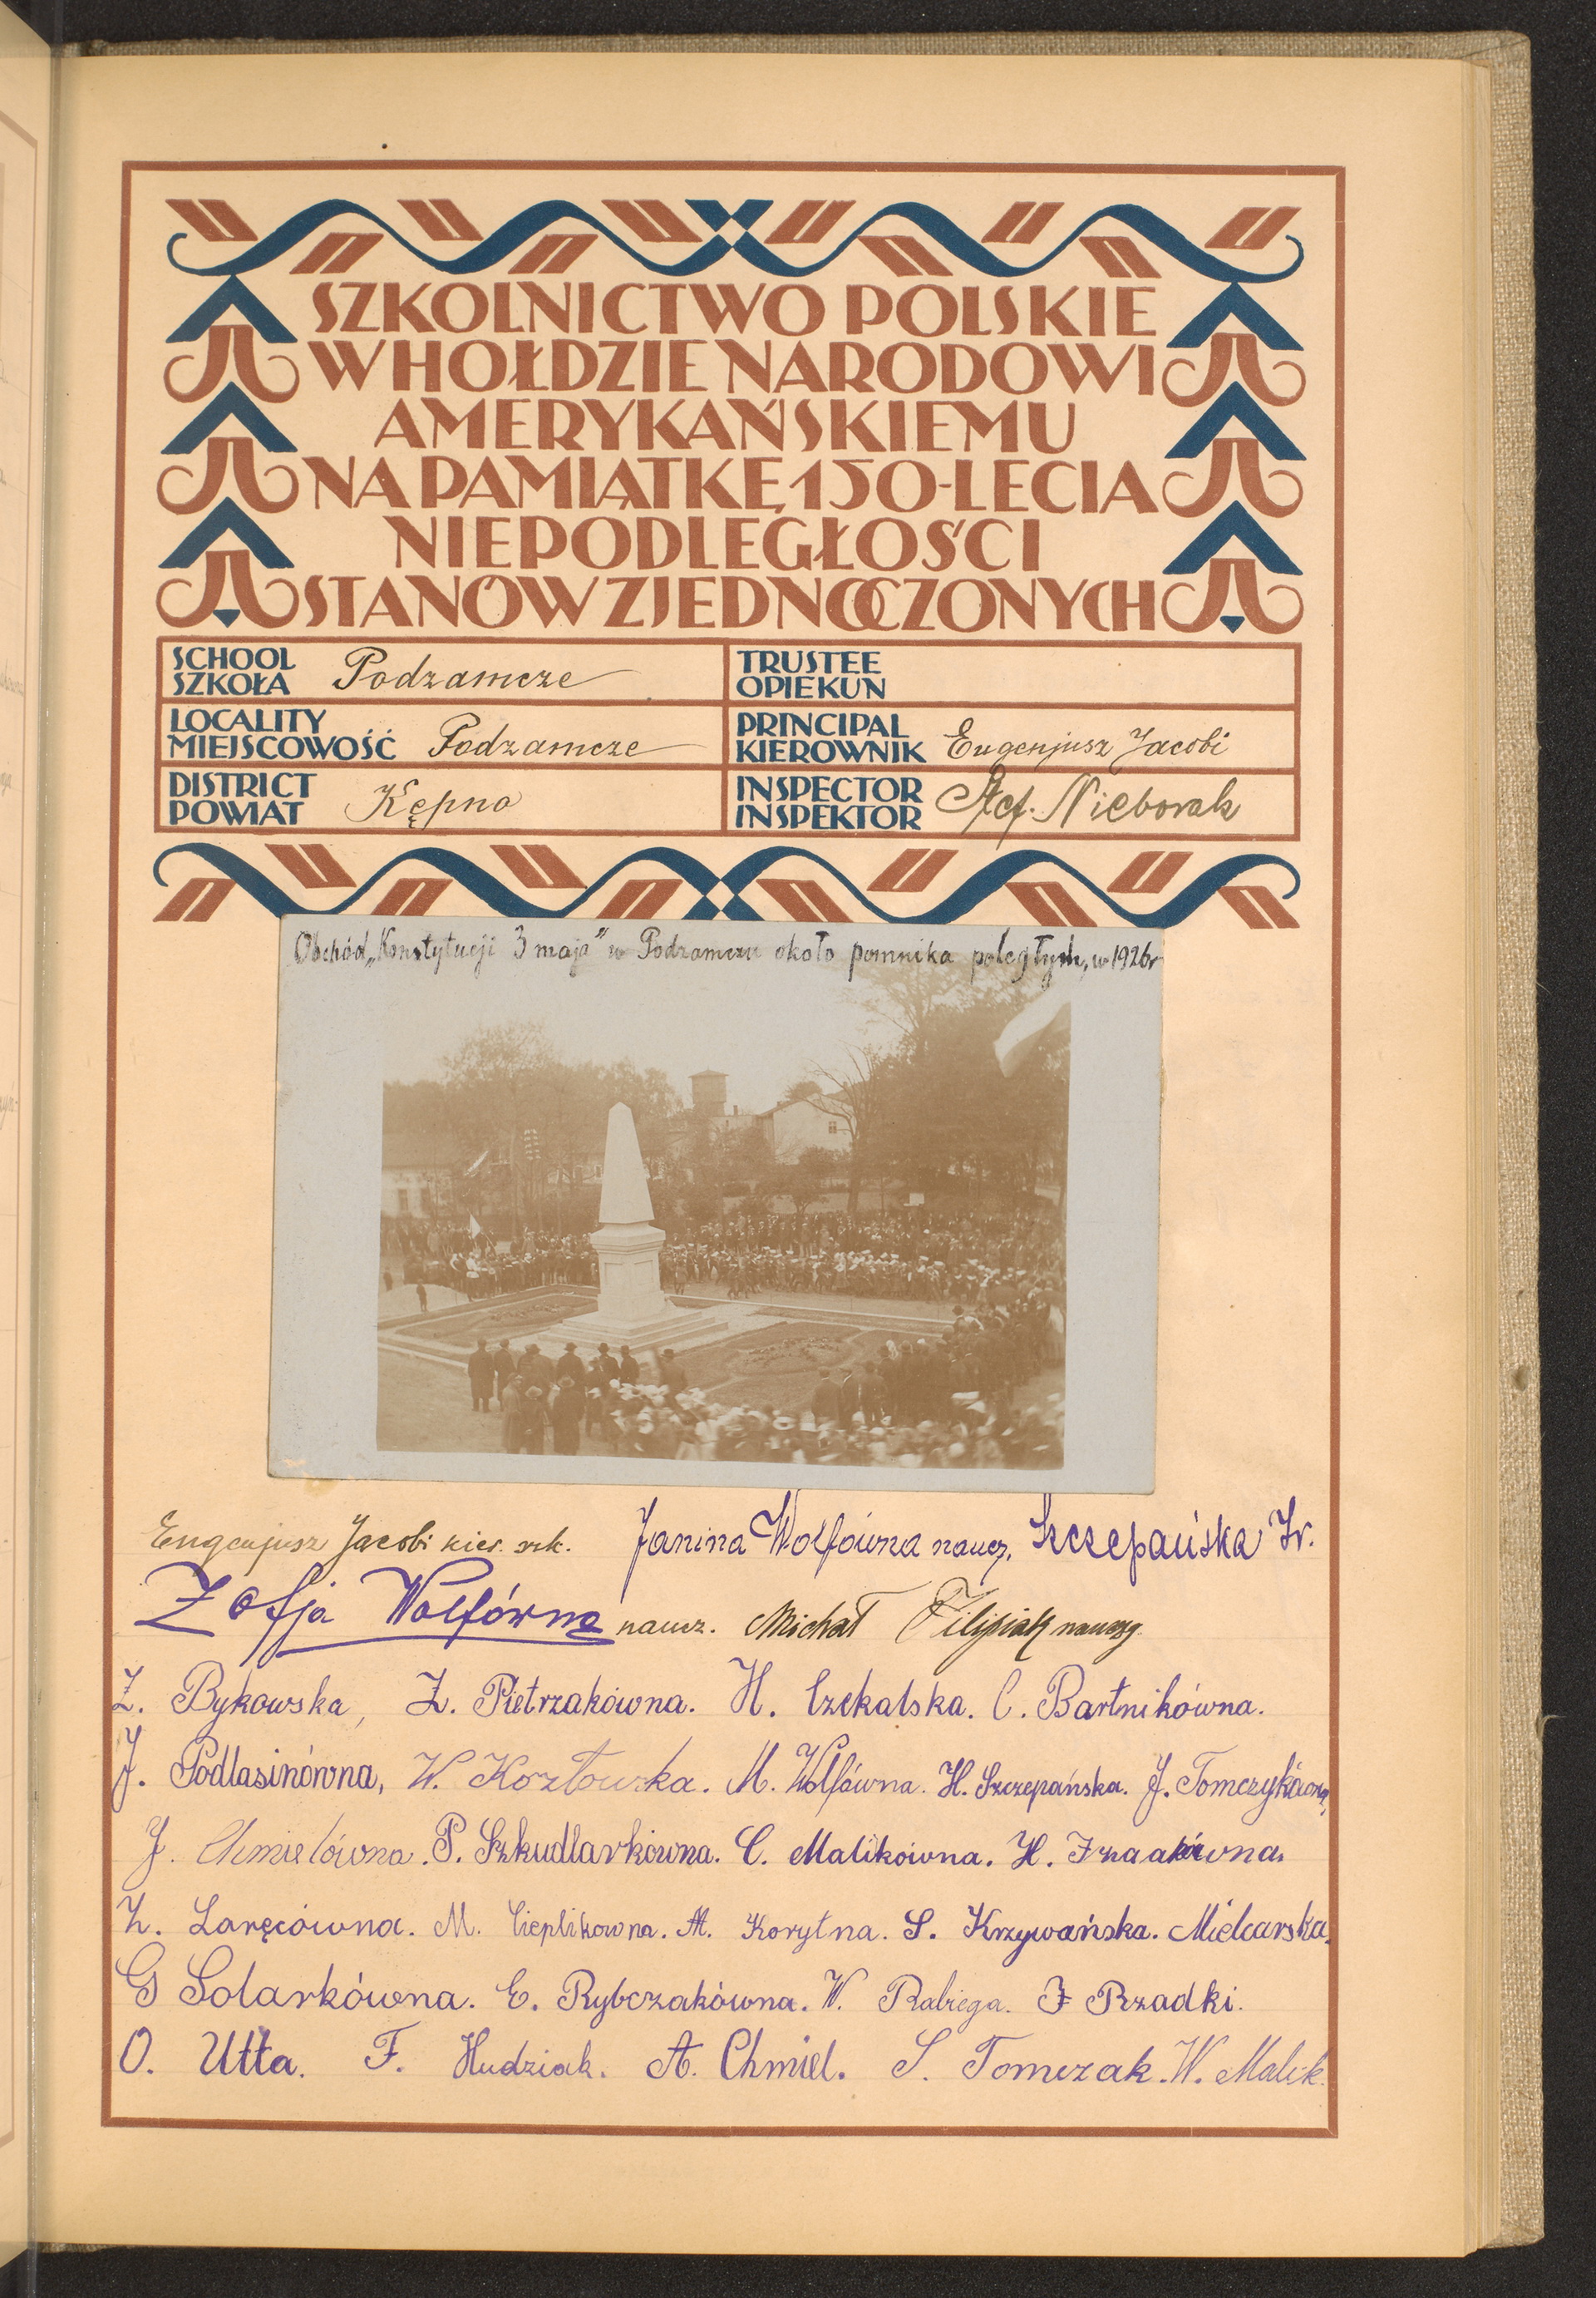 SZKOLNICTWO POLSKIE
W HOŁDZIE NARODOWI
AMERYKAŃSKIEMU
NA PAMIĄTKĘ 150-LECIA
NIEPODLEGŁOŚCI
STANÓW ZJEDNOCZONYCH
SCHOOL
SZKOŁA Podzamcze
TRUSTEE
OPIEKUN
LOCALITY
MIEJSCOWOŚĆ Podzamcze
PRINCIPAL
KIEROWNIK Eugenjusz Jacobi
DISTRICT
POWIAT Kępno
INSPECTOR
INSPEKTOR Nieborak
Obchód „Konstytucji 3 maja" w Podzamczu około pomnika poległych, w 1926r
Eugenjusz Jacobi kier. szk. Janina Wolfówna naucz. Szczepańska Ir.
Zofja Wolfówna naucz. Michał Filipiak nauczy.
Z. Bykowska, Z. Pietrzakówna. H. Czekalska. C. Bartnikówna.
J. Podlasinówna, W. Kozłowska. M. Wolfówna. H. Szczepańska. J. Tomczykówna,
J. Chmielówna. P. Szkudlarkówna. C. Malikówna. H.
Z. Zaręcówna. M. Cieplikowna. M. Korytna. S. Krzywańska. Mielcarska.
G Solarkówna. E. Rybczakówna. W. Rabiega. F Rzadki.
O. Utta. F. Hudziak. A. Chmiel. S. Tomczak. W. Malik.